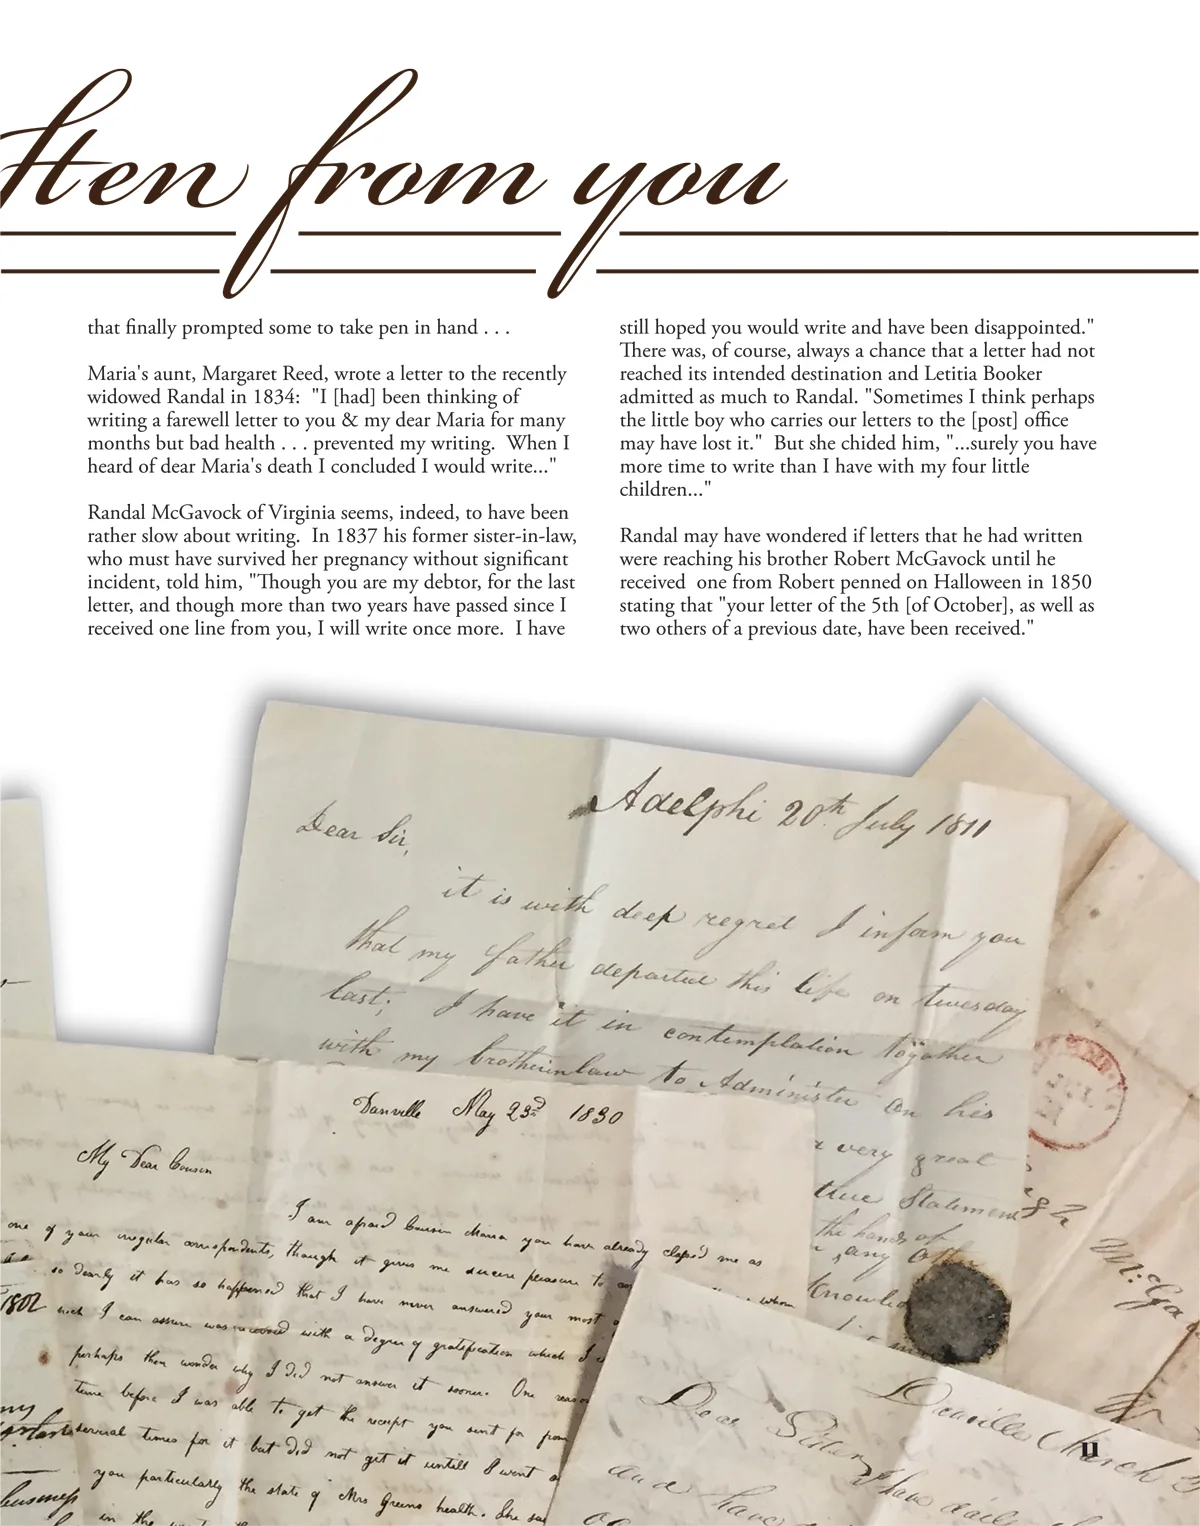 tten from you
that finally prompted some to take pen in hand . . .
Maria's aunt, Margaret Reed, wrote a letter to the recently
widowed Randal in 1834:  "I [had] been thinking of
writing a farewell letter to you & my dear Maria for many
months but bad health . . . prevented my writing.  When I
heard of dear Maria's death I concluded I would write..."
Randal McGavock of Virginia seems, indeed, to have been
rather slow about writing.  In 1837 his former sister-in-law,
who must have survived her pregnancy without significant
incident, told him, "Though you are my debtor, for the last
letter, and though more than two years have passed since I
received one line from you, I will write once more.  I have
still hoped you would write and have been disappointed."
There was, of course, always a chance that a letter had not
reached its intended destination and Letitia Booker
admitted as much to Randal. "Sometimes I think perhaps
the little boy who carries our letters to the [post] office
may have lost it."  But she chided him, "...surely you have
more time to write than I have with my four little
children..."
Randal may have wondered if letters that he had written
were reaching his brother Robert McGavock until he
received  one from Robert penned on Halloween in 1850
stating that "your letter of the 5th [of October], as well as
two others of a previous date, have been received."
Adelphi 20th July 1811
Dear Sir,
it is with deep regret I inform you
that my father departed this life on tuesday
last; I have it in contemplation together
with my brotherinlaw to Administer on his
very great
true Statement
the hands of
any other
Danville May 23d 1830
My Dear Cousin
I am afraid Cousin Maria you have already clepsed me as
one of your irregular correspondents, though it gives me sincere pleasure to
so dearly it has so happened that I have never answered your most
whom
1802
I can assure was received with a degree of gratification which I
perhaps then wonder why I did not answer it sooner. One reason
time before I was able to get the receipt you sent for from
several times for it but did not get it untill I went
you particularly the state of Mrs Greens health. She
in the
82
McGa
Danville March
Dear Sister
I have
and have
11